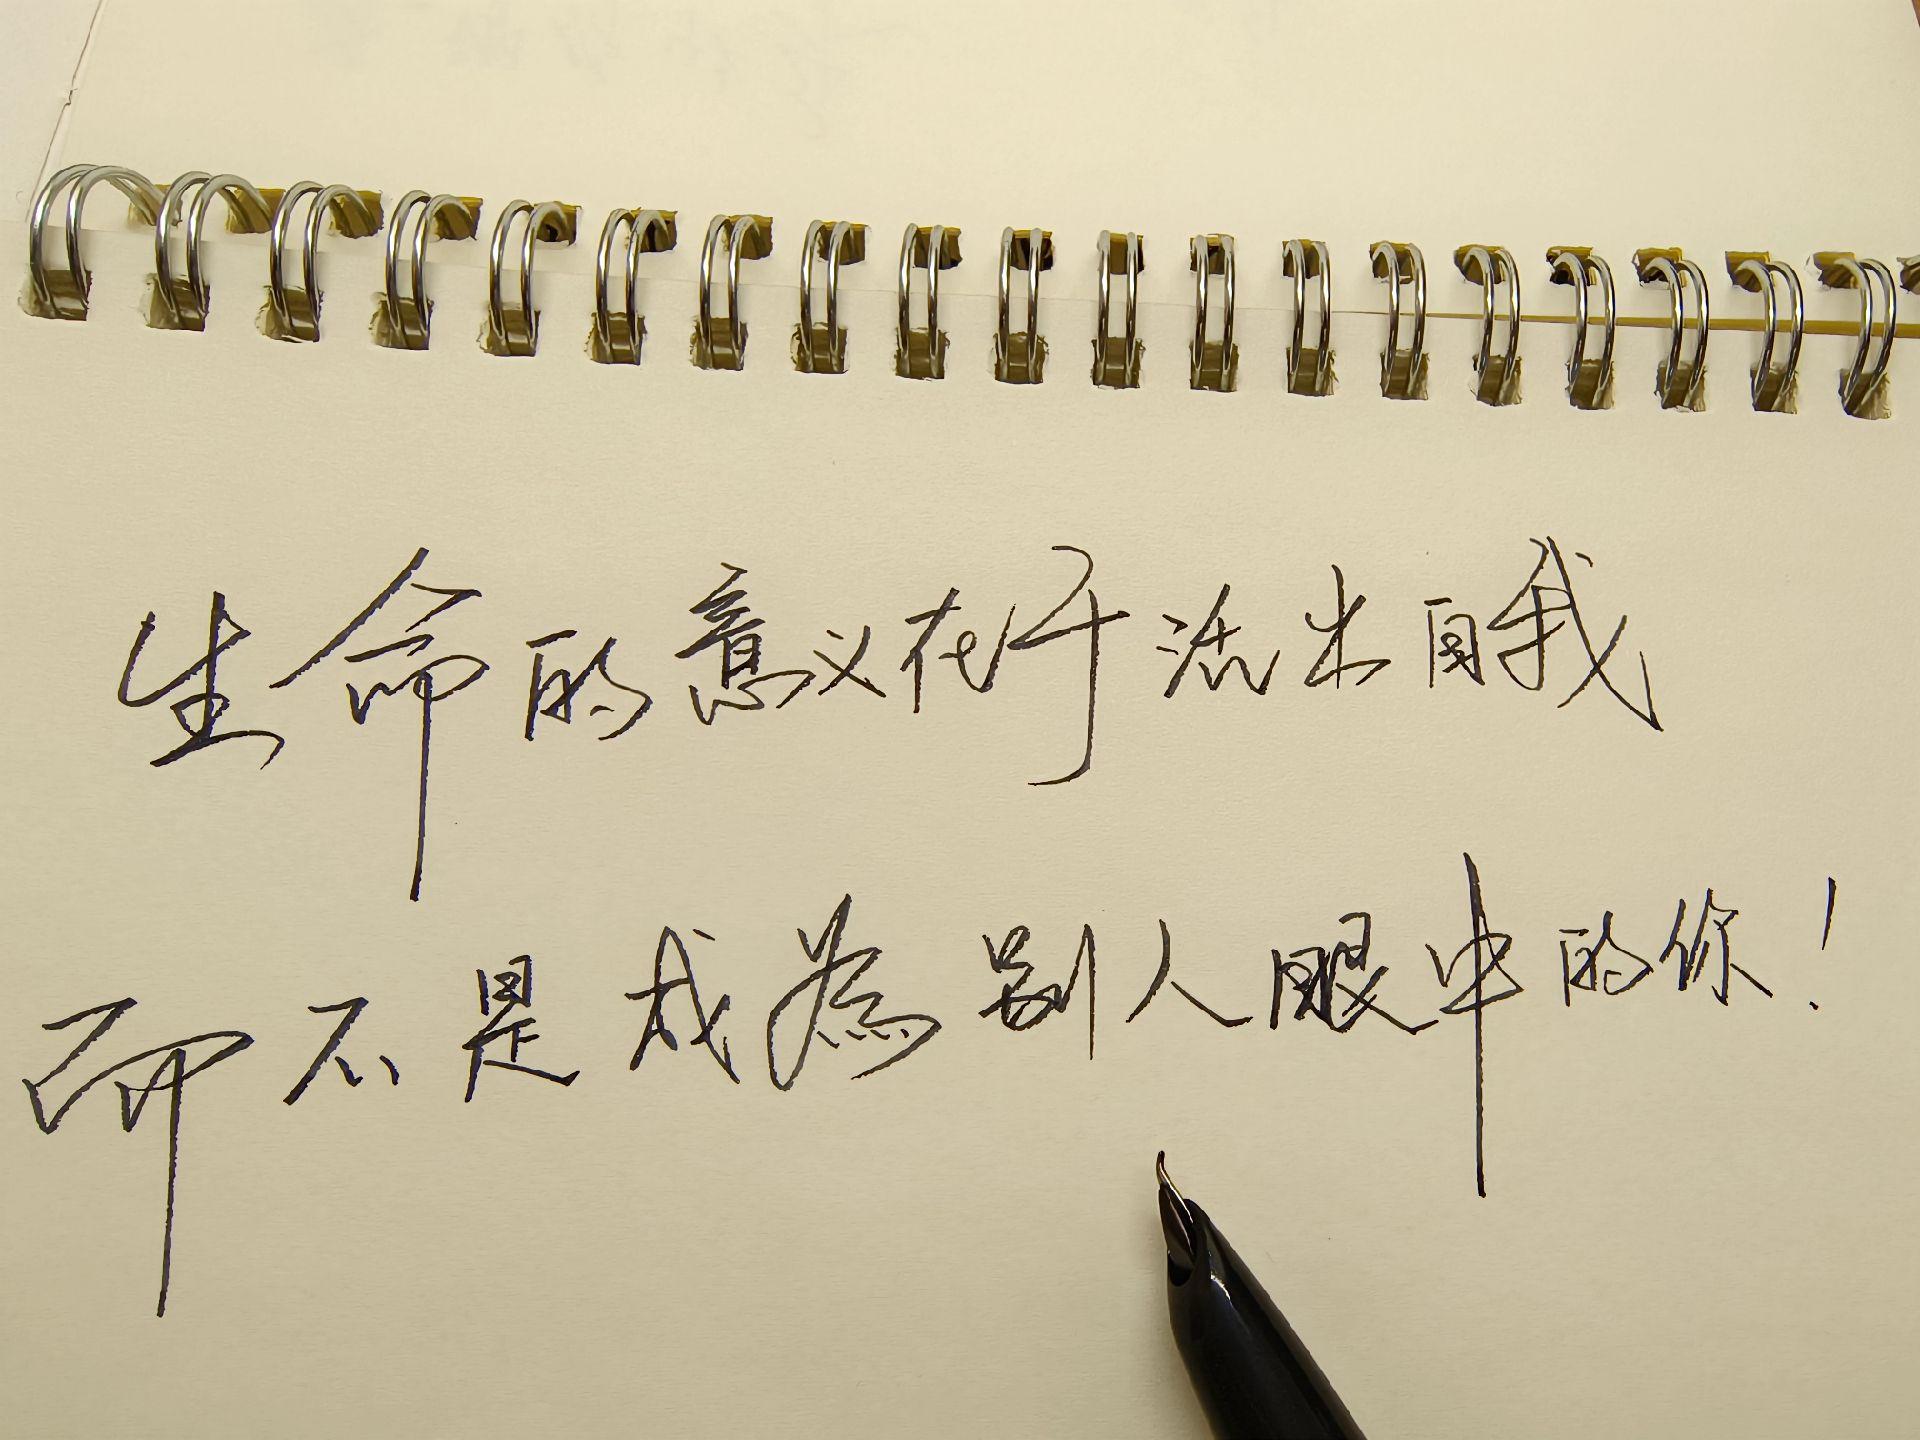 生命的意义在于活出自我
而不是成为别人眼中的你！